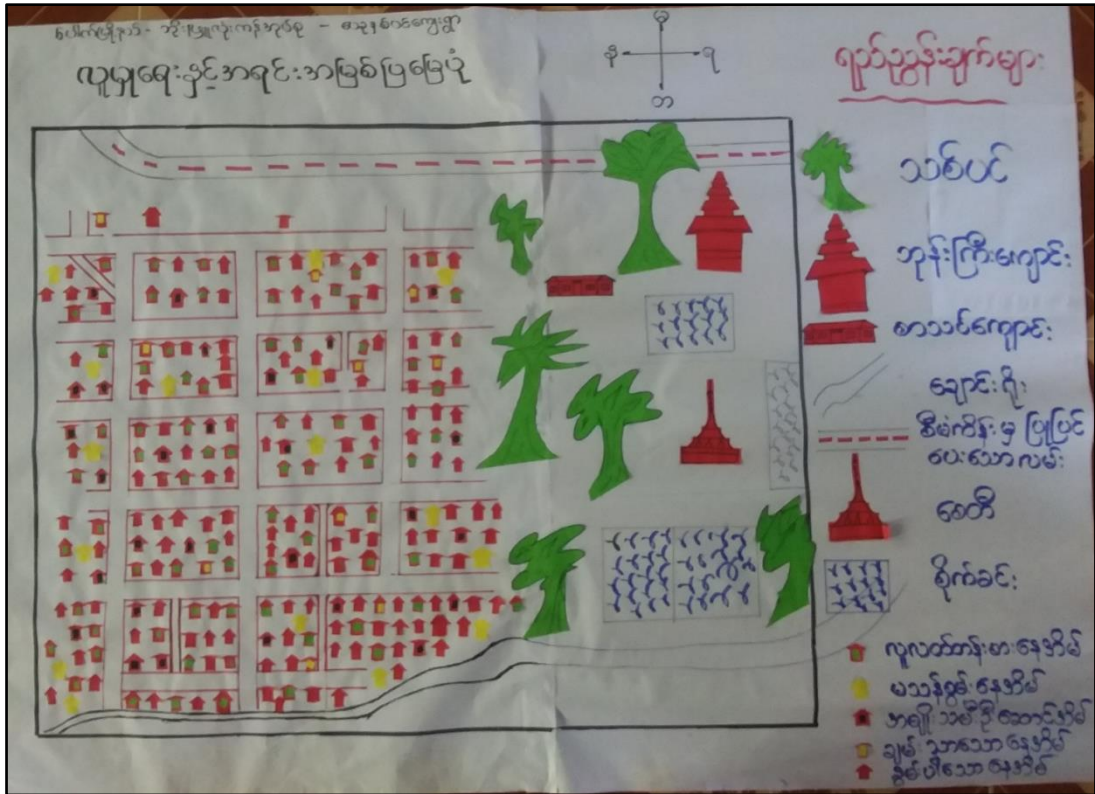 ပေါက်မြို့နယ် - ဘိုးဖြူလုံးကန်အုပ်စု - ကျေးရွာ
လူမှုရေးနှင့်အရင်းအမြစ်ပြမြေပုံ
မ
န
ရ
တ
ရည်ညွှန်းချက်များ
သစ်ပင်
ဘုန်းကြီးကျောင်း
စာသင်ကျောင်း
ချောင်းရိုး
စီမံကိန်းမှ ပြုပြင်
ပေးသောလမ်း
စေတီ
စိုက်ခင်း
လူလတ်တန်းစားနေအိမ်
မသန်စွမ်းနေအိမ်
အမျိုးသမီးဦးဆောင်အိမ်
ချမ်းသာသောနေအိမ်
နွမ်းပါးသောနေအိမ်